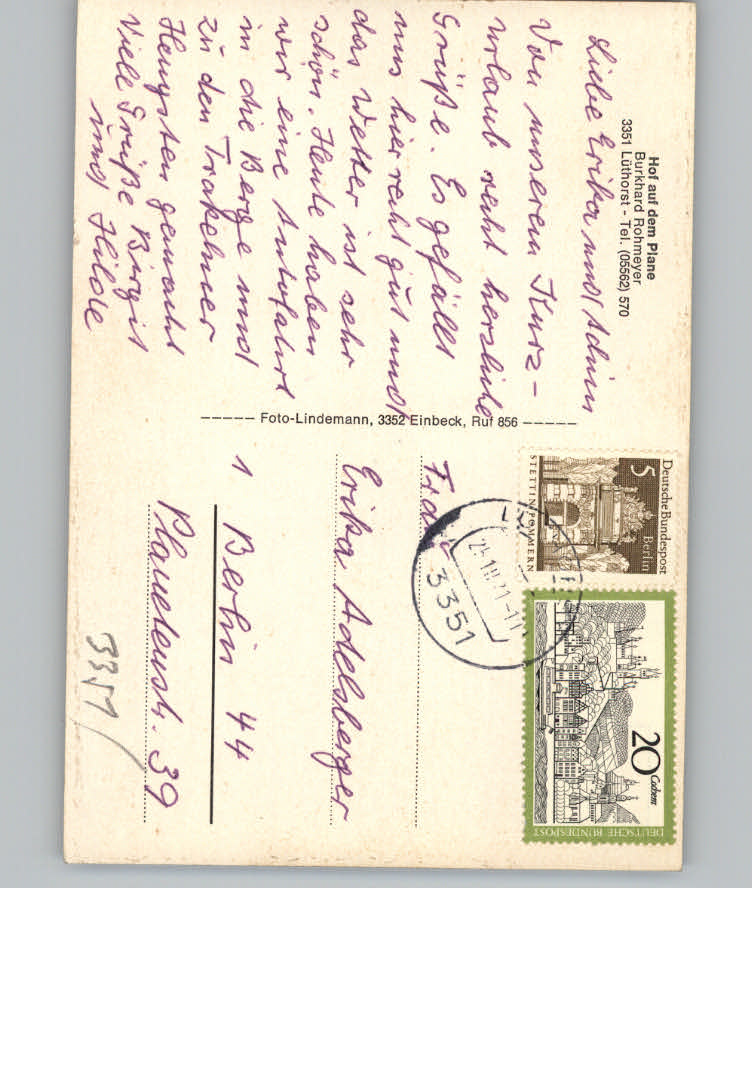 Hof auf dem Plane
Burkhard Rohmeyer
3351 Lüthorst - Tel. (05562) 570
Liebe Erika und Achim
Von unserem Kurz-
urlaub recht herzliche
Grüße. Es gefällt
uns hier recht gut und
das Wetter ist sehr
schön. Heute haben
wir eine Autofahrt
in die Berge und
zu den Trakehner
Hengsten gemacht
Viele Grüße Birgit
und Hilde
----- Foto-Lindemann, 3352 Einbeck, Ruf 856 -----
Deutsche Bundespost
Berlin
5
STETTIN/POMMERN
20 Cochem
DEUTSCHE BUNDESPOST
3351
Frau
Erika Adelsberger
1 Berlin 44
Planetenstr. 39
3351